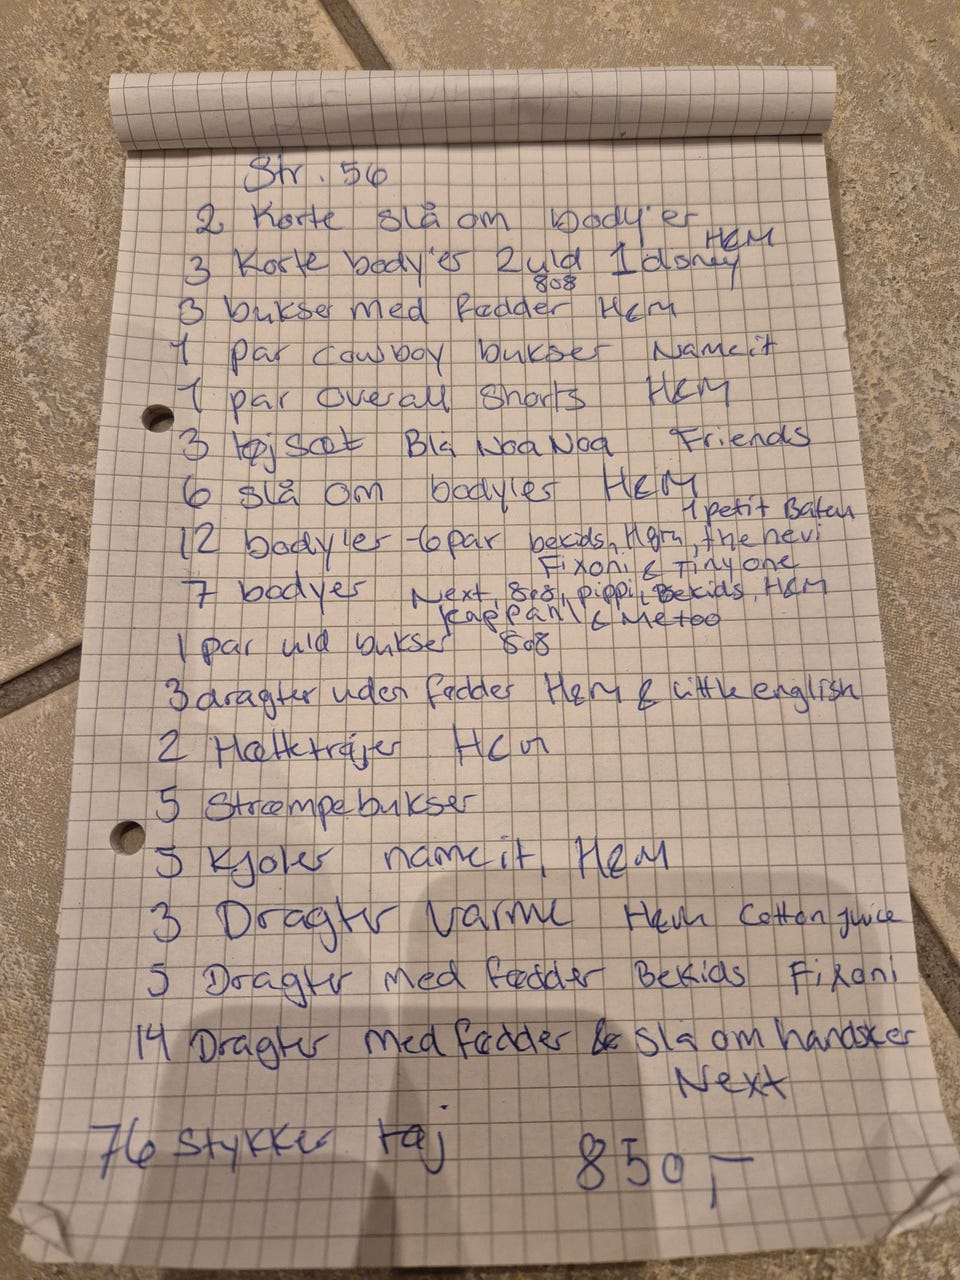 Str. 56
2 Korte slå om body'er
3 Korte body'er 2 uld 1 disney H&M
808
3 bukser med fødder H&M
1 par cowboy bukser Nameit
1 par overall shorts H&M
3 tøjsæt Blå Noa Noa Friends
6 slå om body'er H&M
1 petit
12 body'er - 6 par bekids, H&m, the nevi
Fixoni & Tiny one
7 bodyer Next, 808, pippi, Bekids, H&M
Kappahl & Metoo
1 par uld bukser 808
3 dragter uden fødder H&M & Little english
2 Hættetrøjer H&M
5 Strømpebukser
5 Kjoler nameit, H&M
3 Dragter varme H&m Cotton juice
5 Dragter med fødder Bekids Fixoni
14 Dragter med fødder & slå om handsker
Next
76 stykker tøj 850,-